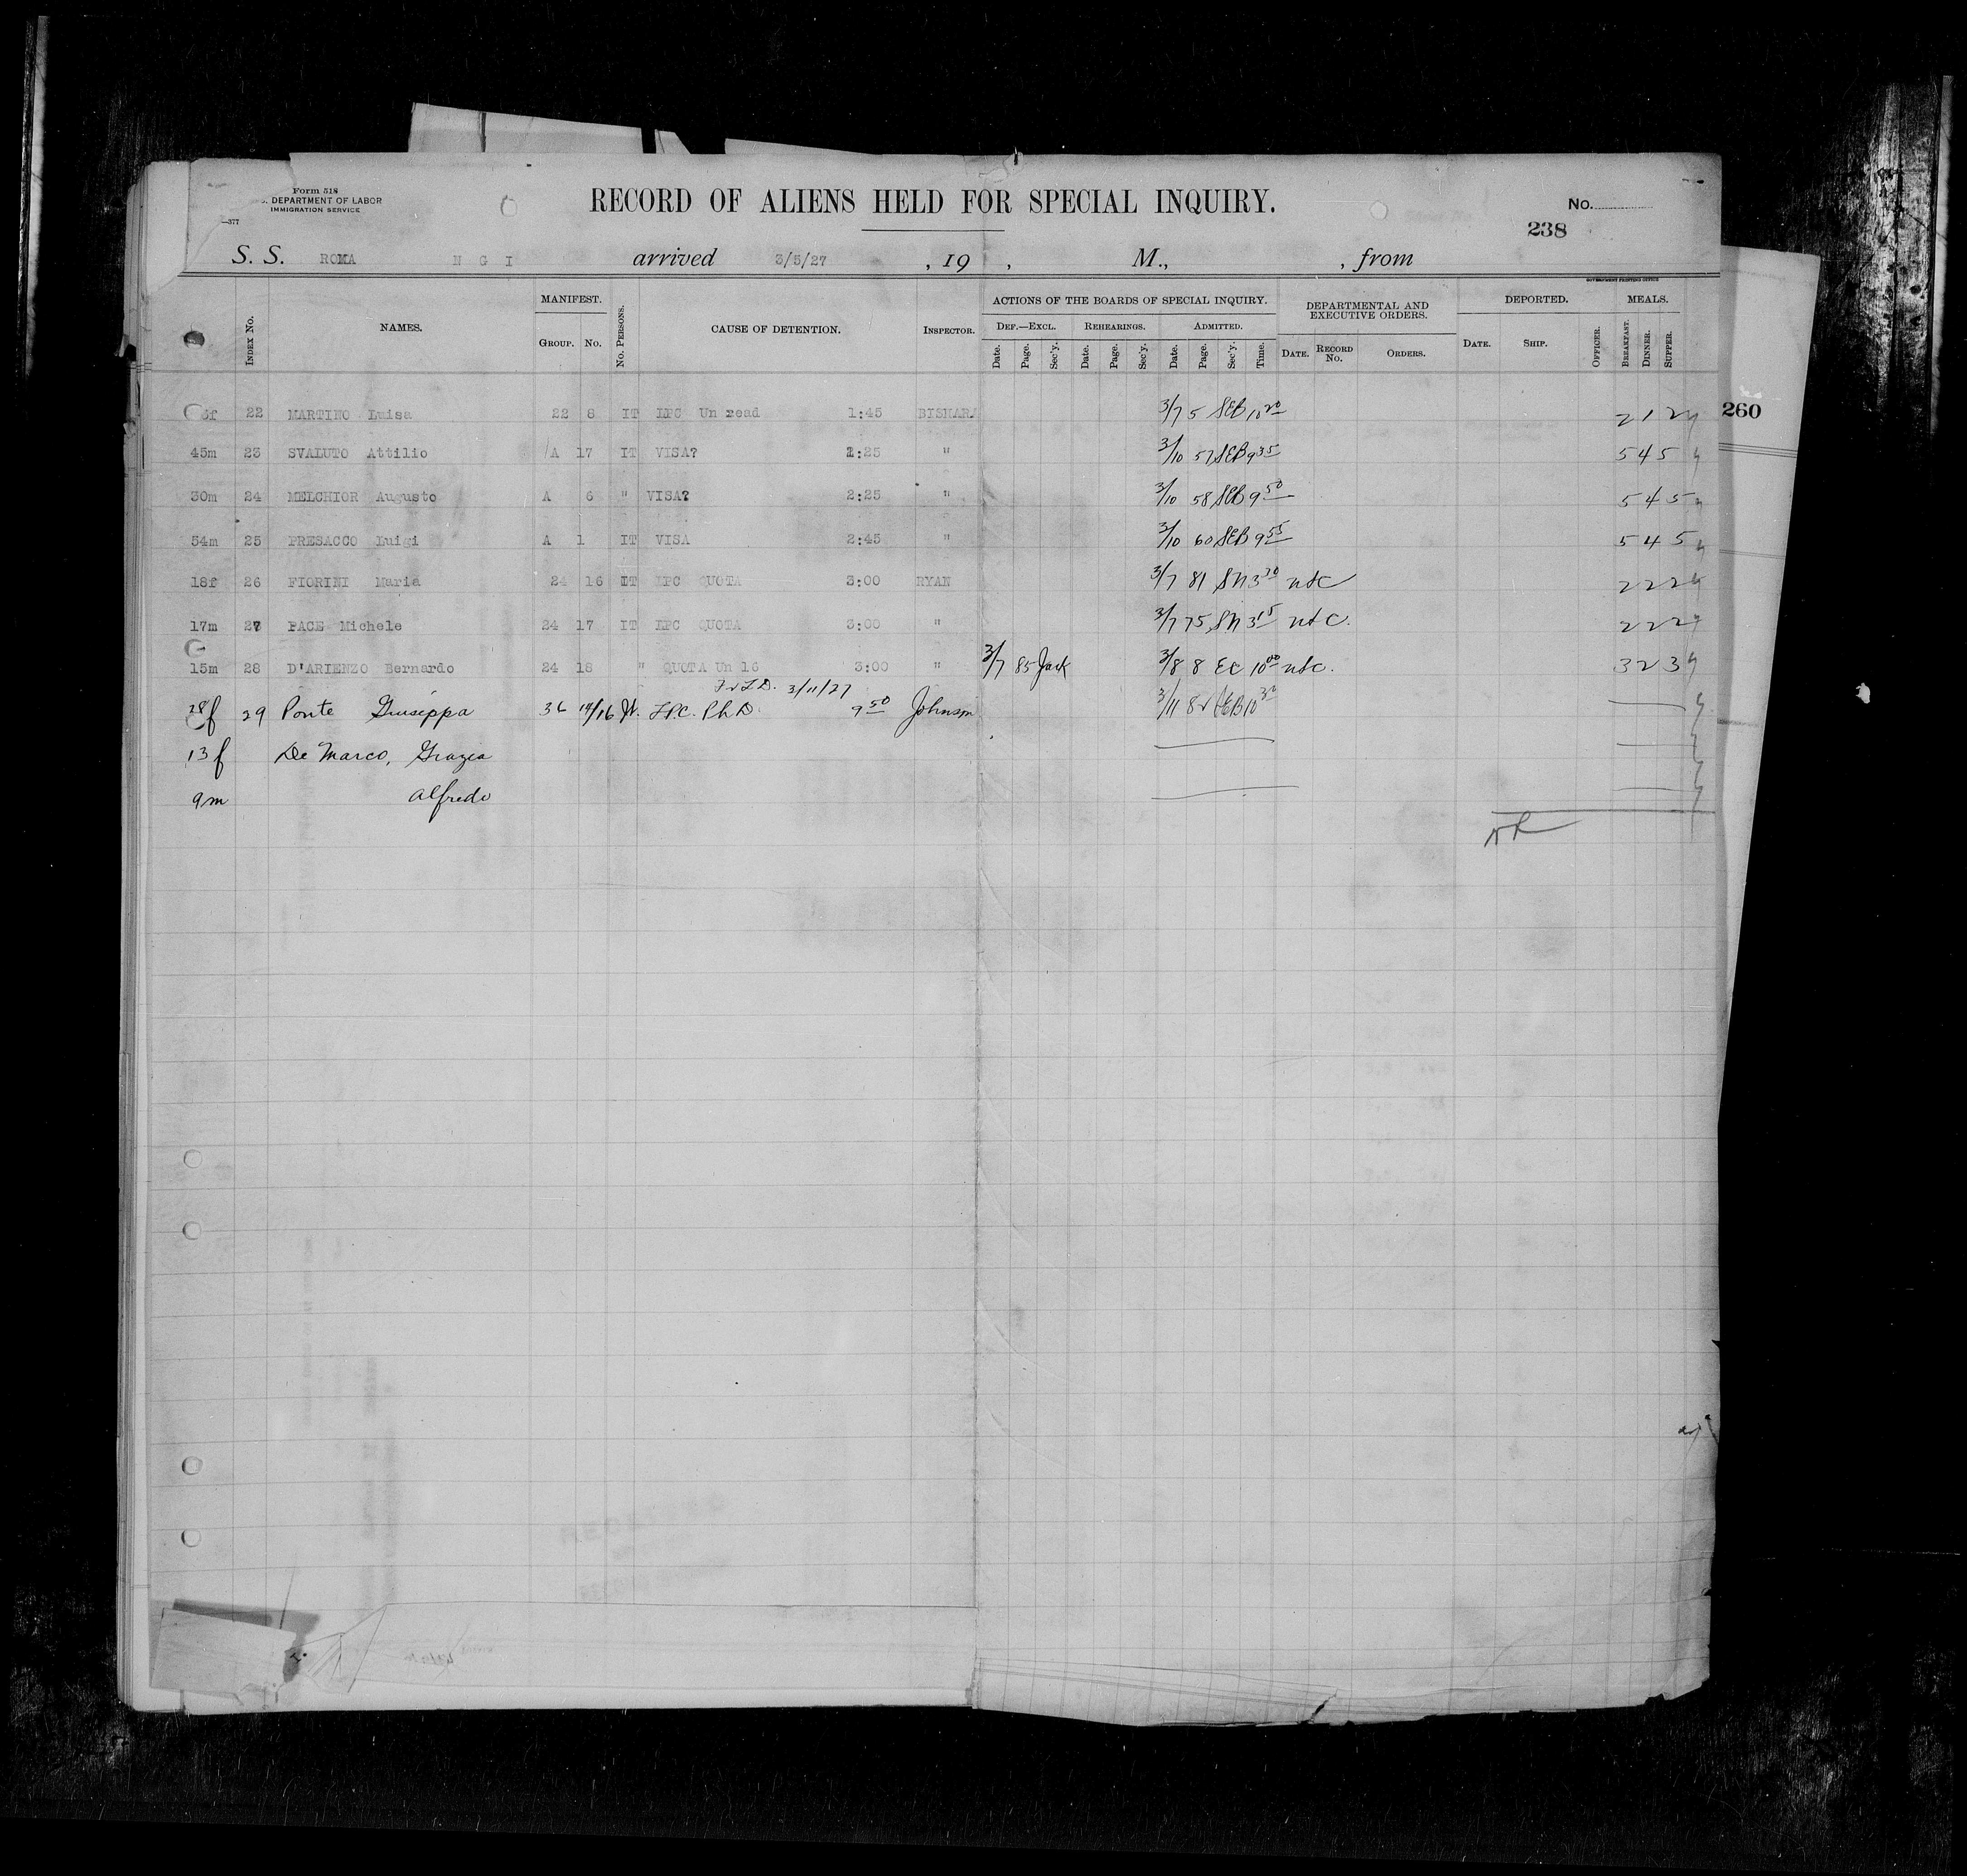 Form 518
DEPARTMENT OF LABOR
IMMIGRATION SERVICE
—377
RECORD OF ALIENS HELD FOR SPECIAL INQUIRY.
No.
238
S. S. ROMA N G I arrived 3/5/27 , 19 , M., , from
GOVERNMENT PRINTING OFFICE
INDEX No. NAMES. MANIFEST. GROUP. No. No. PERSONS. CAUSE OF DETENTION. INSPECTOR. ACTIONS OF THE BOARDS OF SPECIAL INQUIRY. DEF.—EXCL. Date. Page. Sec'y. REHEARINGS. Date. Page. Sec'y. ADMITTED. Date. Page. Sec'y. Time. DEPARTMENTAL AND EXECUTIVE ORDERS. DATE. RECORD No. ORDERS. DEPORTED. DATE. SHIP. OFFICER. MEALS. BREAKFAST. DINNER. SUPPER.
22 MARTINO Luisa 22 8 IT LPC Un read 1:45 3/7 5 SEB 10 20 2 1 2
260
45m 23 SVALUTO Attilio A 17 IT VISA? 2:25 " 3/10 57 SEB 9 35 5 4 5
30m 24 MELCHIOR Augusto A 6 " VISA? 2:25 " 3/10 58 SEB 9 50 5 4 5
54m 25 PRESACCO Luigi A 1 IT VISA 2:45 " 3/10 60 SEB 9 55 5 4 5
18f 26 FIORINI Maria 24 16 IT LPC QUOTA 3:00 RYAN 3/7 81 SN 3 30 ntc 2 2 2
17m 27 PACE Michele 24 17 IT LPC QUOTA 3:00 " 3/7 75 SN 3 15 ntc. 2 2 2
15m 28 D'ARIENZO Bernardo 24 18 " QUOTA Un 16 3:00 " 3/7 85 Jack 3/8 8 EC 10 00 ntc. 3 2 3
3/11/27
28f 29 Ponte Giuseppa 36 14/16 It. LPC. Ph D. 9 50 Johnson 3/11 82 SEB 10 30
13f De Marco, Grazia
9m Alfredo